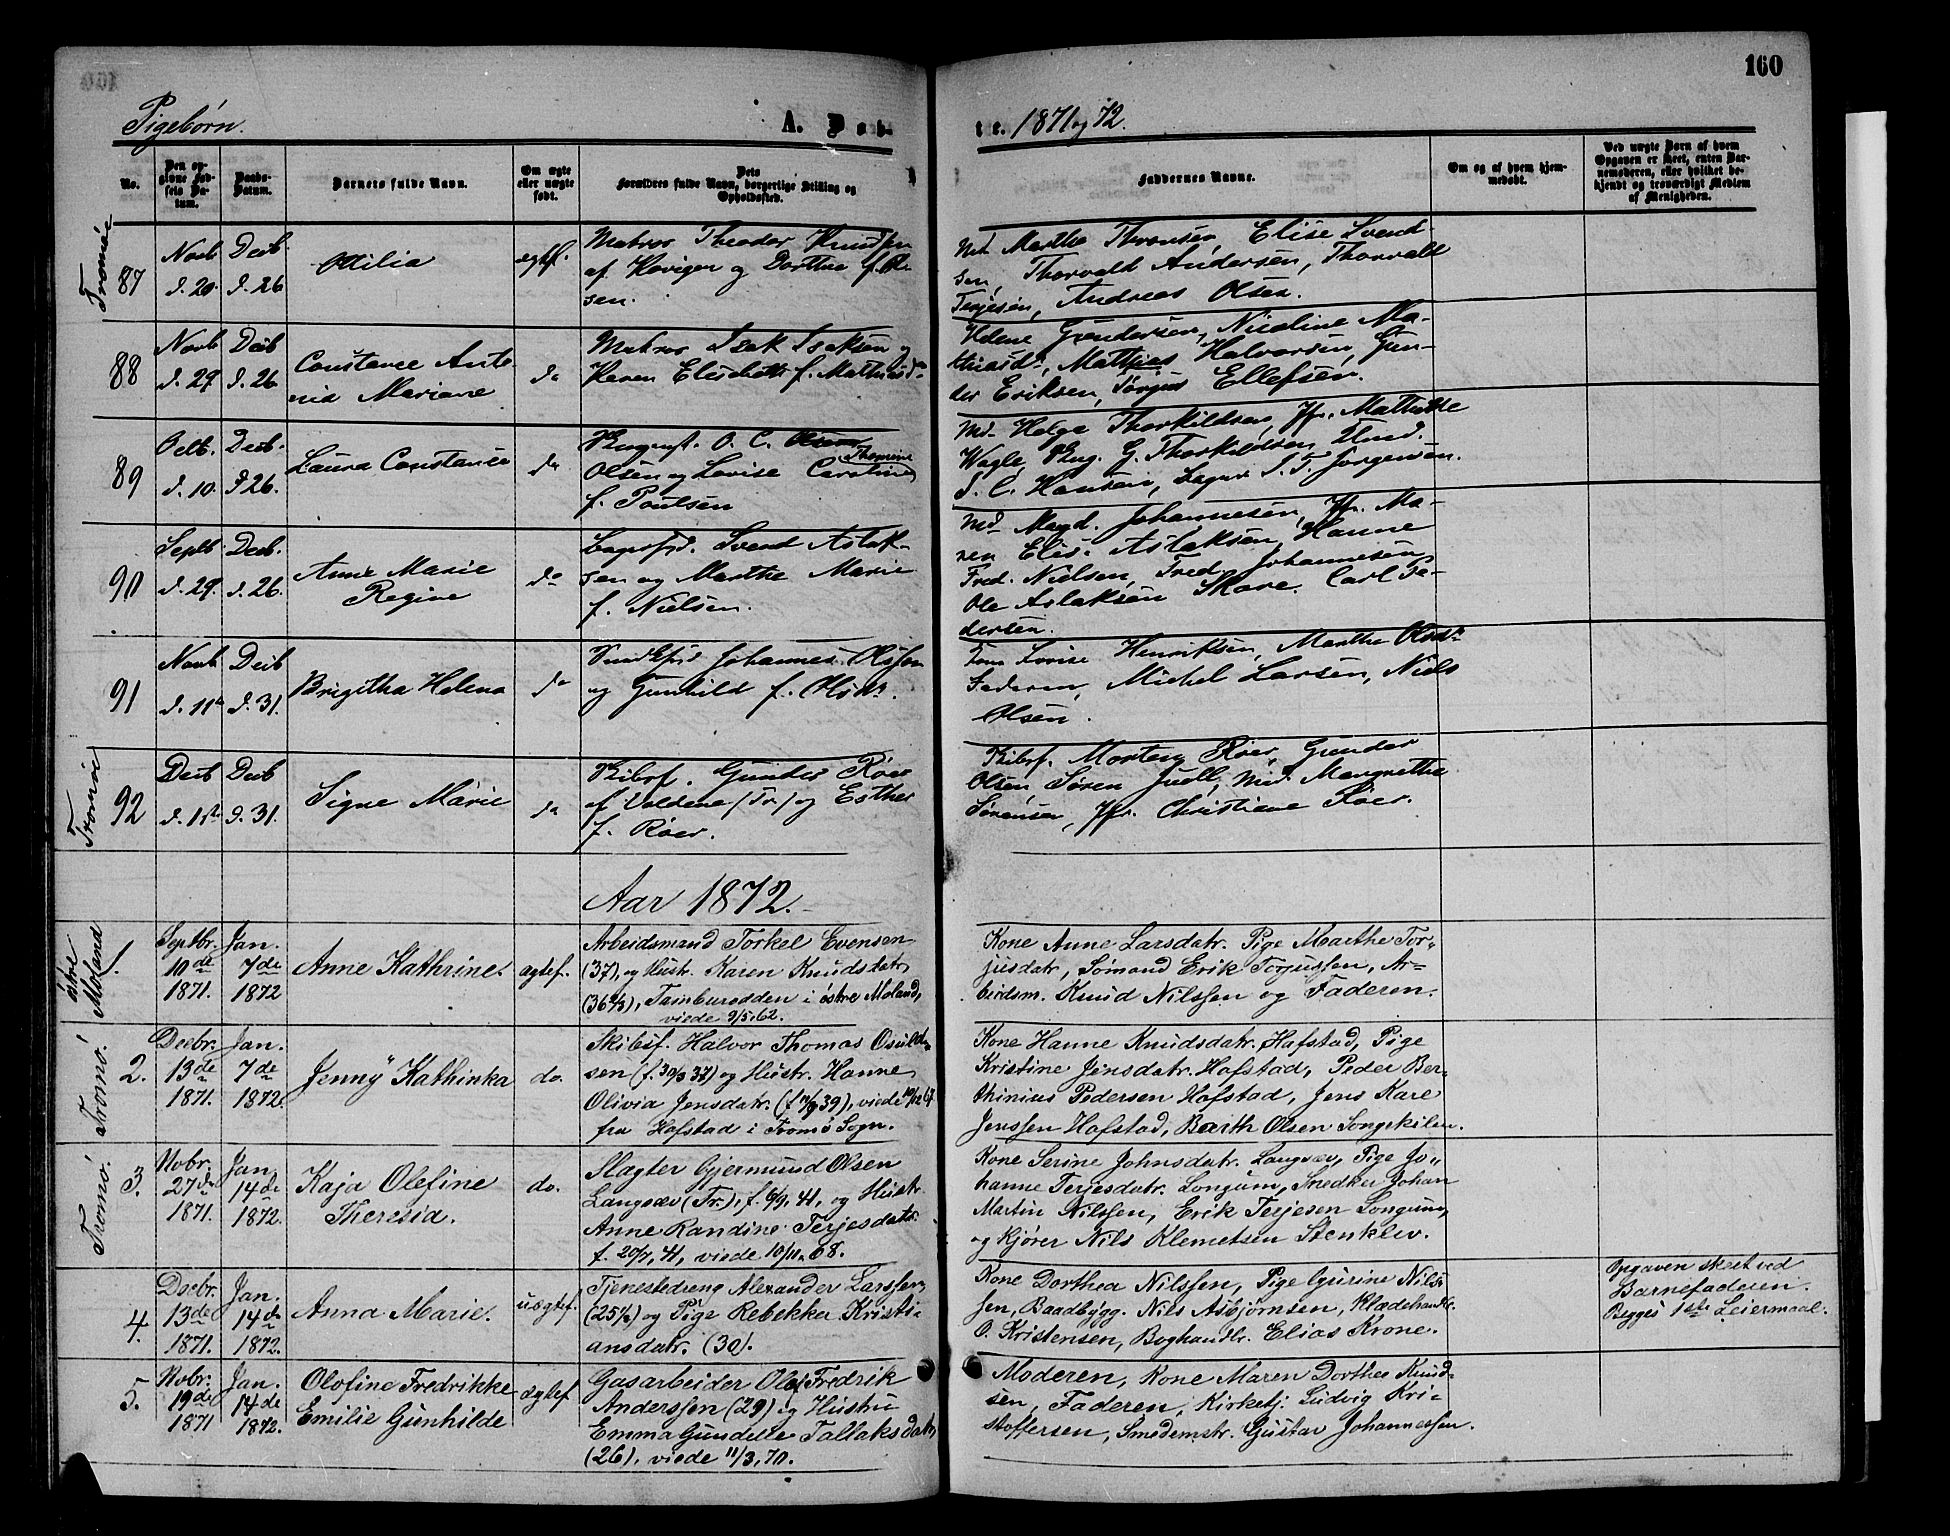 160
Pigebørn.
A. Døb-
te. 1871 og 72.
No.
Den op-
givne Fød-
sels Da-
tum.
Daabs-
Datum.
Barnets fulde Navn.
Om ægte
eller uægte
født.
Dets
Forældres fulde Navn, borgerlige Stilling og
Opholdssted.
Faddernes Navne.
Om og af hvem hjem-
medøbt.
Ved uægte Børn af hvem
Opgaven er skeet, enten Bar-
nemoderen, eller hvilket be-
kjendt og troværdigt Medlem
af Menigheden.
Tromøe
87
Novb
d. 20.
Decb.
d. 26
Otilia
ægtef.
Matros Theodor Knudsen
af Havigen og Dorthea f. Ol-
sen.
Md. Marthe Thronsen, Elise Svend-
sen, Thorvald Andersen, Thorvald
Terjesen, Andreas Olsen.
88
Novb
d. 29
Decb
d. 26
Constance Anto
nia Mariane
do
Matros Isak Isaksen og
Karen Elisabeth f. Mathiasd.
Helene Gundersen, Nicoline Ma-
thiasd., Matthias Halvorsen, Gun-
der Eriksen, Jørgen Ellefsen.
89
Octb.
d. 10.
Decb.
d. 26.
Laura Constance
do
O. C.
Olsen og Lovise Caroline Thomine
f. Poulsen
Md. Helga Thorkildsen, Jfr. Mathilde
Wagle, G. Thorkildsen, Stud.
S. C. Hansen, S. T. Jørgensen.
90
Septb
d. 29.
Decb.
d. 26.
Anne Marie
Regine
do
Svend Aslak-
sen og Marthe Marie
f. Nielsen.
Md. Magd. Johannesen, Jfr. Ma-
ren Elis. Aslaksen, Hanne
Fred. Nielsen, Fred. Johannesen,
Ole Aslaksen Skare. Carl Pe-
dersen.
91
Novb
d. 11te
Decb
d. 31.
Brigitha Helena
do
Johannes Olsson
og Gunhild f. Olsd.
Lovise Henriksen, Marthe Olsd.
Faderen, Michel Larsen, Niels
Olsen.
Tromøe
92
Decb
d. 1ste
Decb
d. 31.
Signe Marie
do
Skibsf. Gunder Røer
af Voldene (Tr.) og Esther
f. Røer.
Skibsf. Morten Røer, Gunder
Olsen, Søren Juell, Md. Margrethe
Sørensen, Jfr. Christiane Røer.
Aar 1872.
østre
Moland
1.
Septbr.
10de
1871.
Jan.
7de
1872
Anne Kathrine.
ægtef.
Arbeidsmand Torkel Evensen
(37), og Hustr. Karen Knudsdatr.
(36 2/3), Tamburodden i østre Moland,
viede 9/5.62.
Kone Anne Larsdatr. Pige Marthe Tor-
jusdatr, Sømand Erik Torjussen, Ar-
beidsm. Knud Nilssen og Faderen.
Tromø!
2.
Decbr.
13de
1871.
Jan.
7de
1872.
Jenny Kathinka
do.
Skibsf. Halvor Thomas Osuld-
sen (f. 30/3 37) og Hustr. Hanne
Olivia Jensdatr. (f. 11/9 39), viede 19/12 67
fra Hofstad i Tromø Sogn.
Kone Hanne Knudsdatr. Hofstad, Pige
Kristine Jensdatr. Hofstad, Peder Ber-
thinius Pedersen Hofstad, Jens Kare
Jenssen Hofstad, Barth Olsen Songekilen.
Tromø!
3.
Nobr.
27de
1871.
Jan.
14de
1872.
Kaja Olefine
Theresia.
do.
Slagter Gjermund Olsen
Langsæv (Tr.), f. 6/9, 41, og Hustr.
Anne Randine Terjesdatr.
f. 20/7, 41, viede 10/11. 68.
Kone Serine Johnsdatr. Langsæv, Pige Jo-
hanne Terjesdatr. Longum, Snedker Johan
Martin Nilssen, Erik Terjesen Longum,
og Kjører Nils Klemetsen Stenklev.
4.
Decbr.
13de
1871.
Jan.
14de
1872.
Anna Marie.
uægtef.
Tjenestedreng Alexander Larssen,
(25½) og Pige Rebekka Kristi-
ansdatr. (30).
Kone Dorthea Nilssen, Pige Gurine Nils-
sen, Baadbygg. Nils Asbjørnsen, Klædehandlr.
O. Kristensen, Boghandlr. Elias Krone.
Opgaven skeet ved
Barnefaderen.
Begges 1ste Leiermaal.
5.
Nobr.
19de
1871
Jan.
14de
1872.
Olofine Fredrikke
Emilie Gunhilde
ægtef
Gasarbeider Olaf Fredrik
Anderssen (29) og Hustru
Emma Gundelle Tallaksdatr,
(26), viede 11/3, 70.
Moderen, Kone Maren Dorthea Knud-
sen, Faderen, Kirketj. Ludvig Kri-
stoffersen, Smedemstr. Gustav Johannessen.